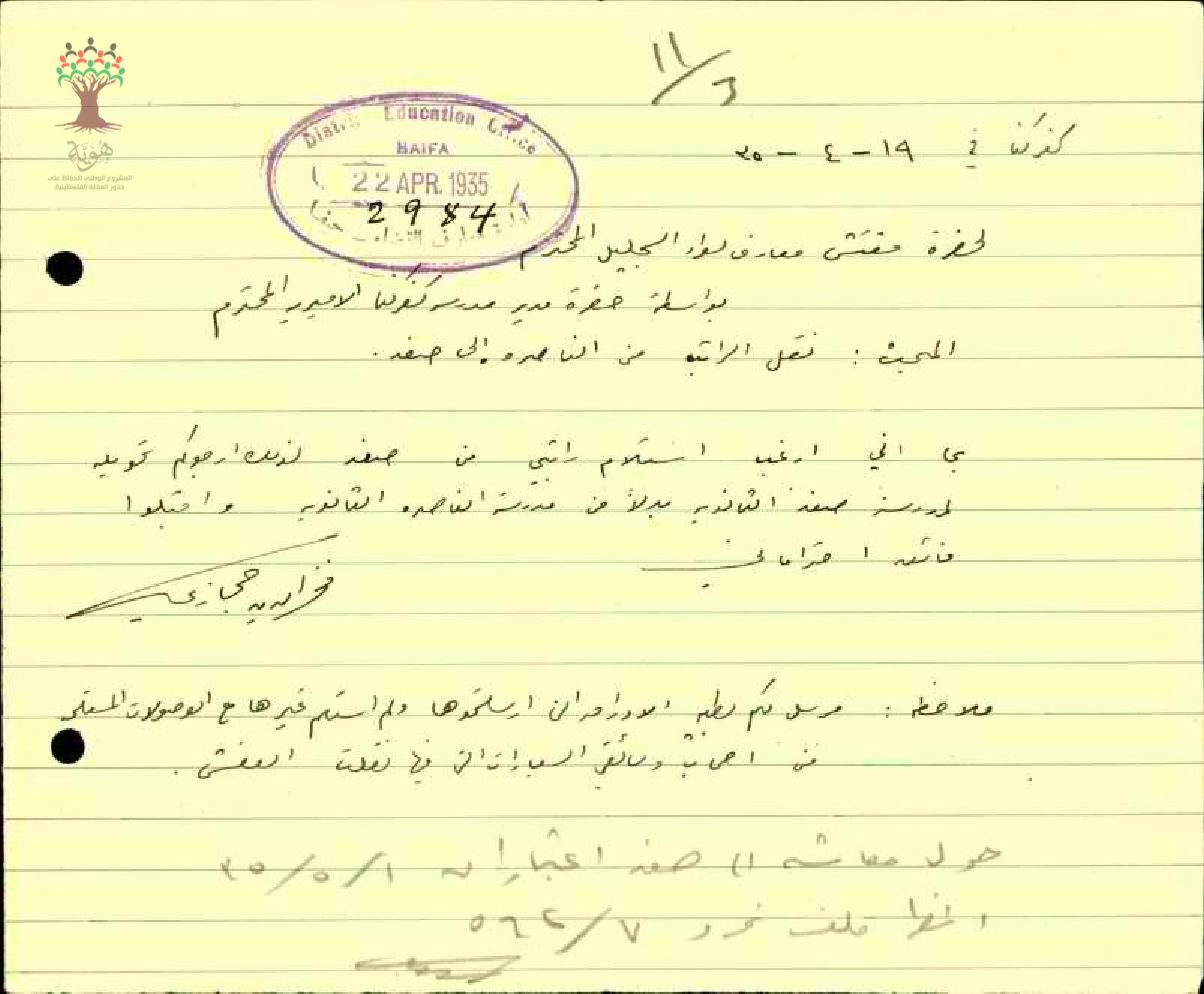 هوية
المشروع الوطني للحفاظ على
جذور العائلة الفلسطينية
١١/٣
District Education Office
HAIFA
22 APR. 1935
2984
كفركنا في ١٩ - ٤ - ٣٥
لحضرة مفتش معارف لواء الجليل المحترم
بواسطة حضرة مدير مدرسة كفركنا الاميرية المحترم
نقل الراتب من الناصره الى صفد.
بما اني ارغب استلام راتبي من صفد لذلك ارجوكم تحويله
لمدرسة صفد الثانويه بدلاً من مدرسة الناصره الثانويه واقبلوا
فائق احتراماتي
فخرالدين حجازي
ملاحظه : مرسل لكم بطيه الاوراق التي ارسلتموها ولم استلم غيرها مع الوصولات
من اصحاب وسائقي السيارات التي فيها نقلت العفش.
حول معاشه الى صفد اعتبارا من ٣٥/٥/١
ملف نمرو ٥٦٢/٧